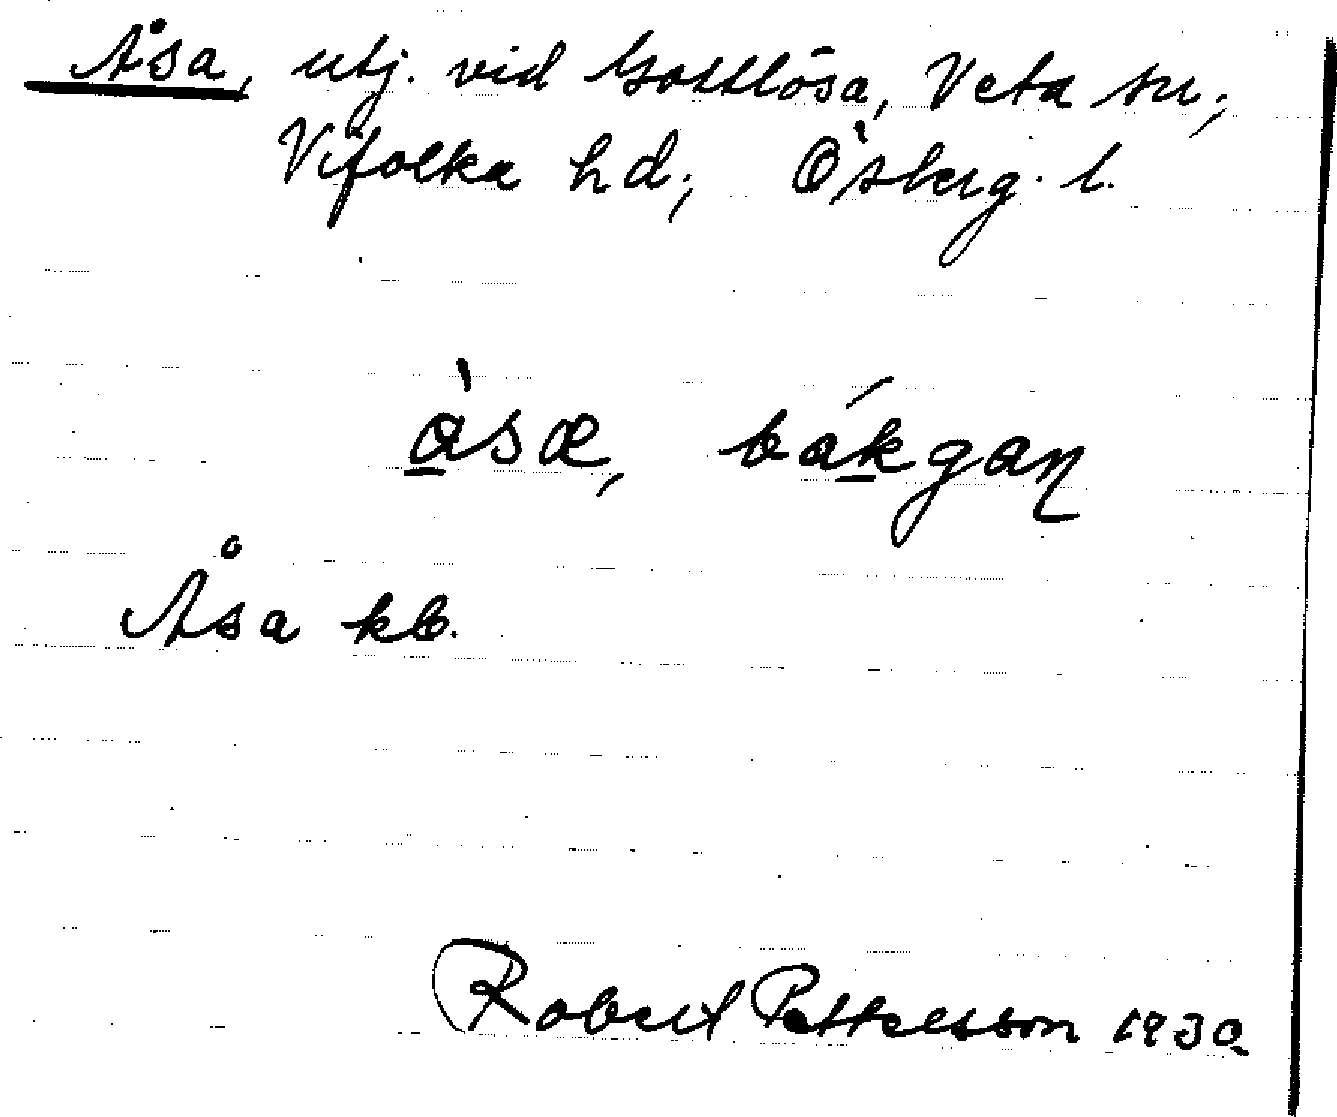 Åsa, utj. vid Gottlösa, Veta sn;
Vifolka hd; Östergl. l.
àsa, bákgaɳ
Åsa kb.
Robert Pettersson 1930